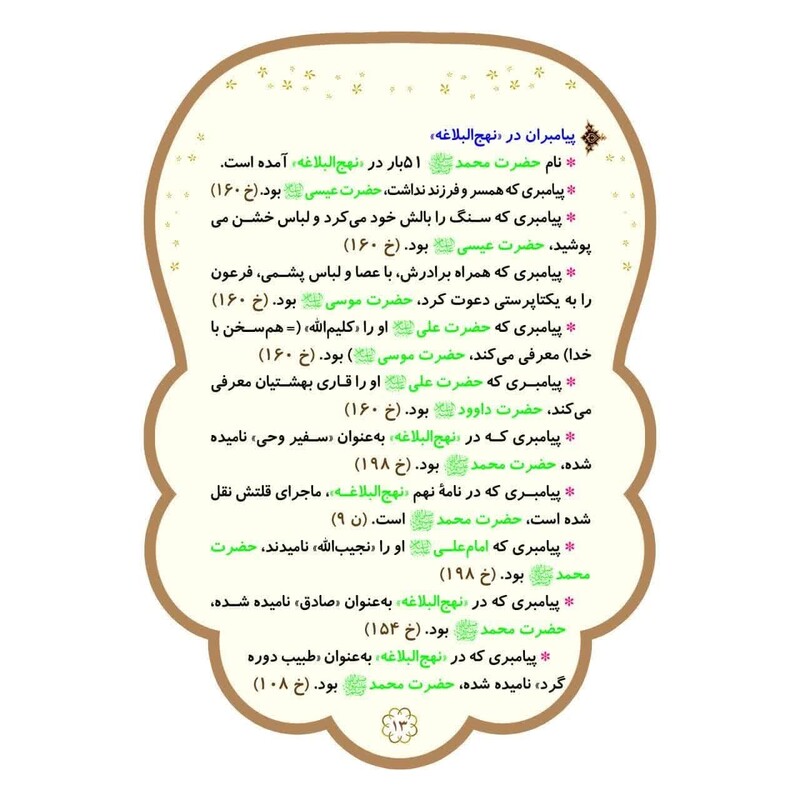 پیامبران در «نهج‌البلاغه»
* نام حضرت محمد ﷺ ۵۱بار در «نهج‌البلاغه» آمده است.
* پیامبری که همسر و فرزند نداشت، حضرت عیسی بود. (خ ۱۶۰)
* پیامبری که سنگ را بالش خود می‌کرد و لباس خشن می
پوشید، حضرت عیسی بود. (خ ۱۶۰)
* پیامبری که همراه برادرش، با عصا و لباس پشمی، فرعون
را به یکتاپرستی دعوت کرد، حضرت موسی بود. (خ ۱۶۰)
* پیامبری که حضرت علی او را «کلیم‌الله» (= هم‌سخن با
خدا) معرفی می‌کند، حضرت موسی) بود. (خ ۱۶۰)
* پیامبری که حضرت علی او را قاری بهشتیان معرفی
می‌کند، حضرت داوود بود. (خ ۱۶۰)
* پیامبری که در «نهج‌البلاغه» به‌عنوان «سفیر وحی» نامیده
شده، حضرت محمد ﷺ بود. (خ ۱۹۸)
* پیامبری که در نامهٔ نهم «نهج‌البلاغه»، ماجرای قلتش نقل
شده است، حضرت محمد ﷺ است. (ن ۹)
* پیامبری که امام‌علی او را «نجیب‌الله» نامیدند، حضرت
محمد ﷺ بود. (خ ۱۹۸)
* پیامبری که در «نهج‌البلاغه» به‌عنوان «صادق» نامیده شده،
حضرت محمد ﷺ بود. (خ ۱۵۴)
* پیامبری که در «نهج‌البلاغه» به‌عنوان «طبیب دوره
گرد» نامیده شده، حضرت محمد ﷺ بود. (خ ۱۰۸)
۱۳